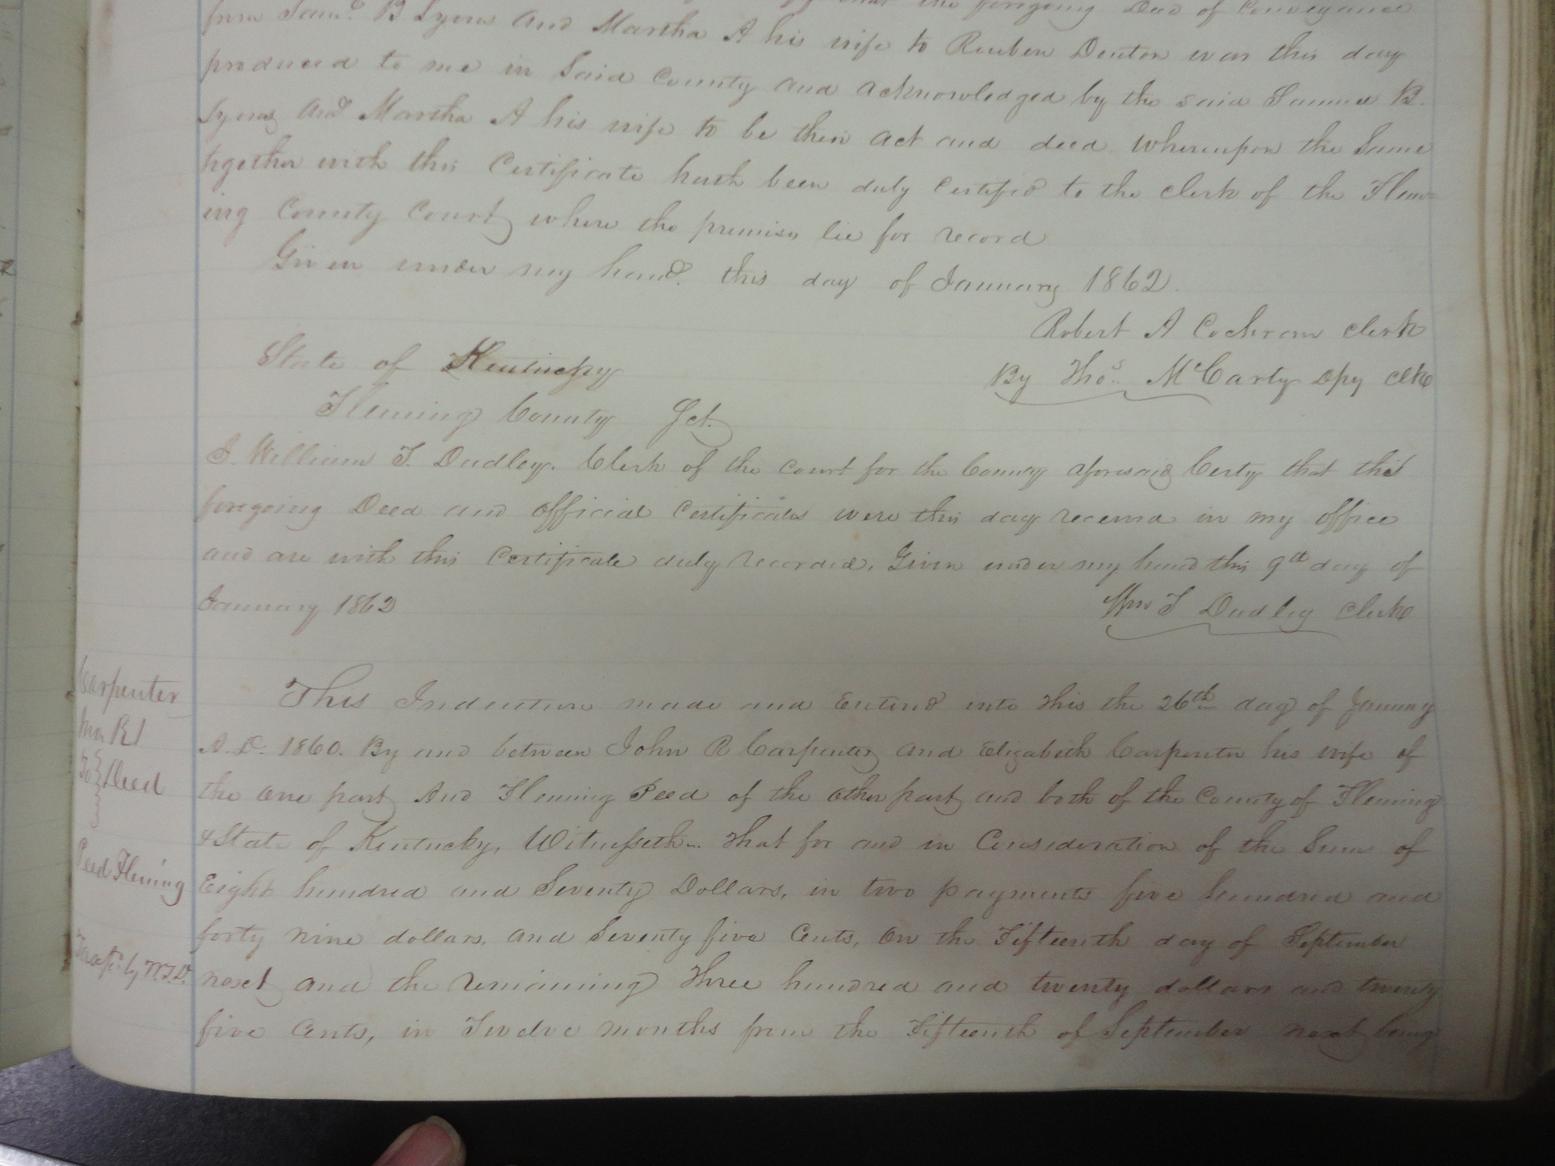 the foregoing Deed of Conveyance
from Saml. B Lyons and Martha A his wife to Reuben Denton was this day
produced to me in Said County and acknowledged by the said Samuel B.
Lyons and Martha A his wife to be their act and deed Whereupon the Same
together with this Certificate hath been duly Certified to the Clerk of the Flem-
ing County Court where the premises lie for record
Given under my hand. this day of January 1862.
Robert A Cochran Clerk
By Thos. McCarty Dpy Clk
State of Kentucky
Fleming County Sct.
I William T. Dudley. Clerk of the Court for the County aforesaid Certy that the
foregoing Deed and official Certificates were this day received in my office
and are with this Certificate duly recorded. Given under my hand this 9th day of
January 1862
Wm T Dudley Clerk
Carpenter
Jno R
To } Deed
Peed Fleming
This Indenture made and Entered into this the 26th day of January
A.D. 1860. By and between John R Carpenter and Elizabeth Carpenter his wife of
the one part And Fleming Peed of the other part and both of the County of Fleming
& State of Kentucky, Witnesseth.. that for and in Consideration of the Sum of
Eight hundred and Seventy Dollars, in two payments five hundred and
forty nine dollars, and Seventy five Cents, on the Fifteenth day of September
next and the remaining Three hundred and twenty dollars and twenty
five Cents, in Twelve months from the Fifteenth of September next being